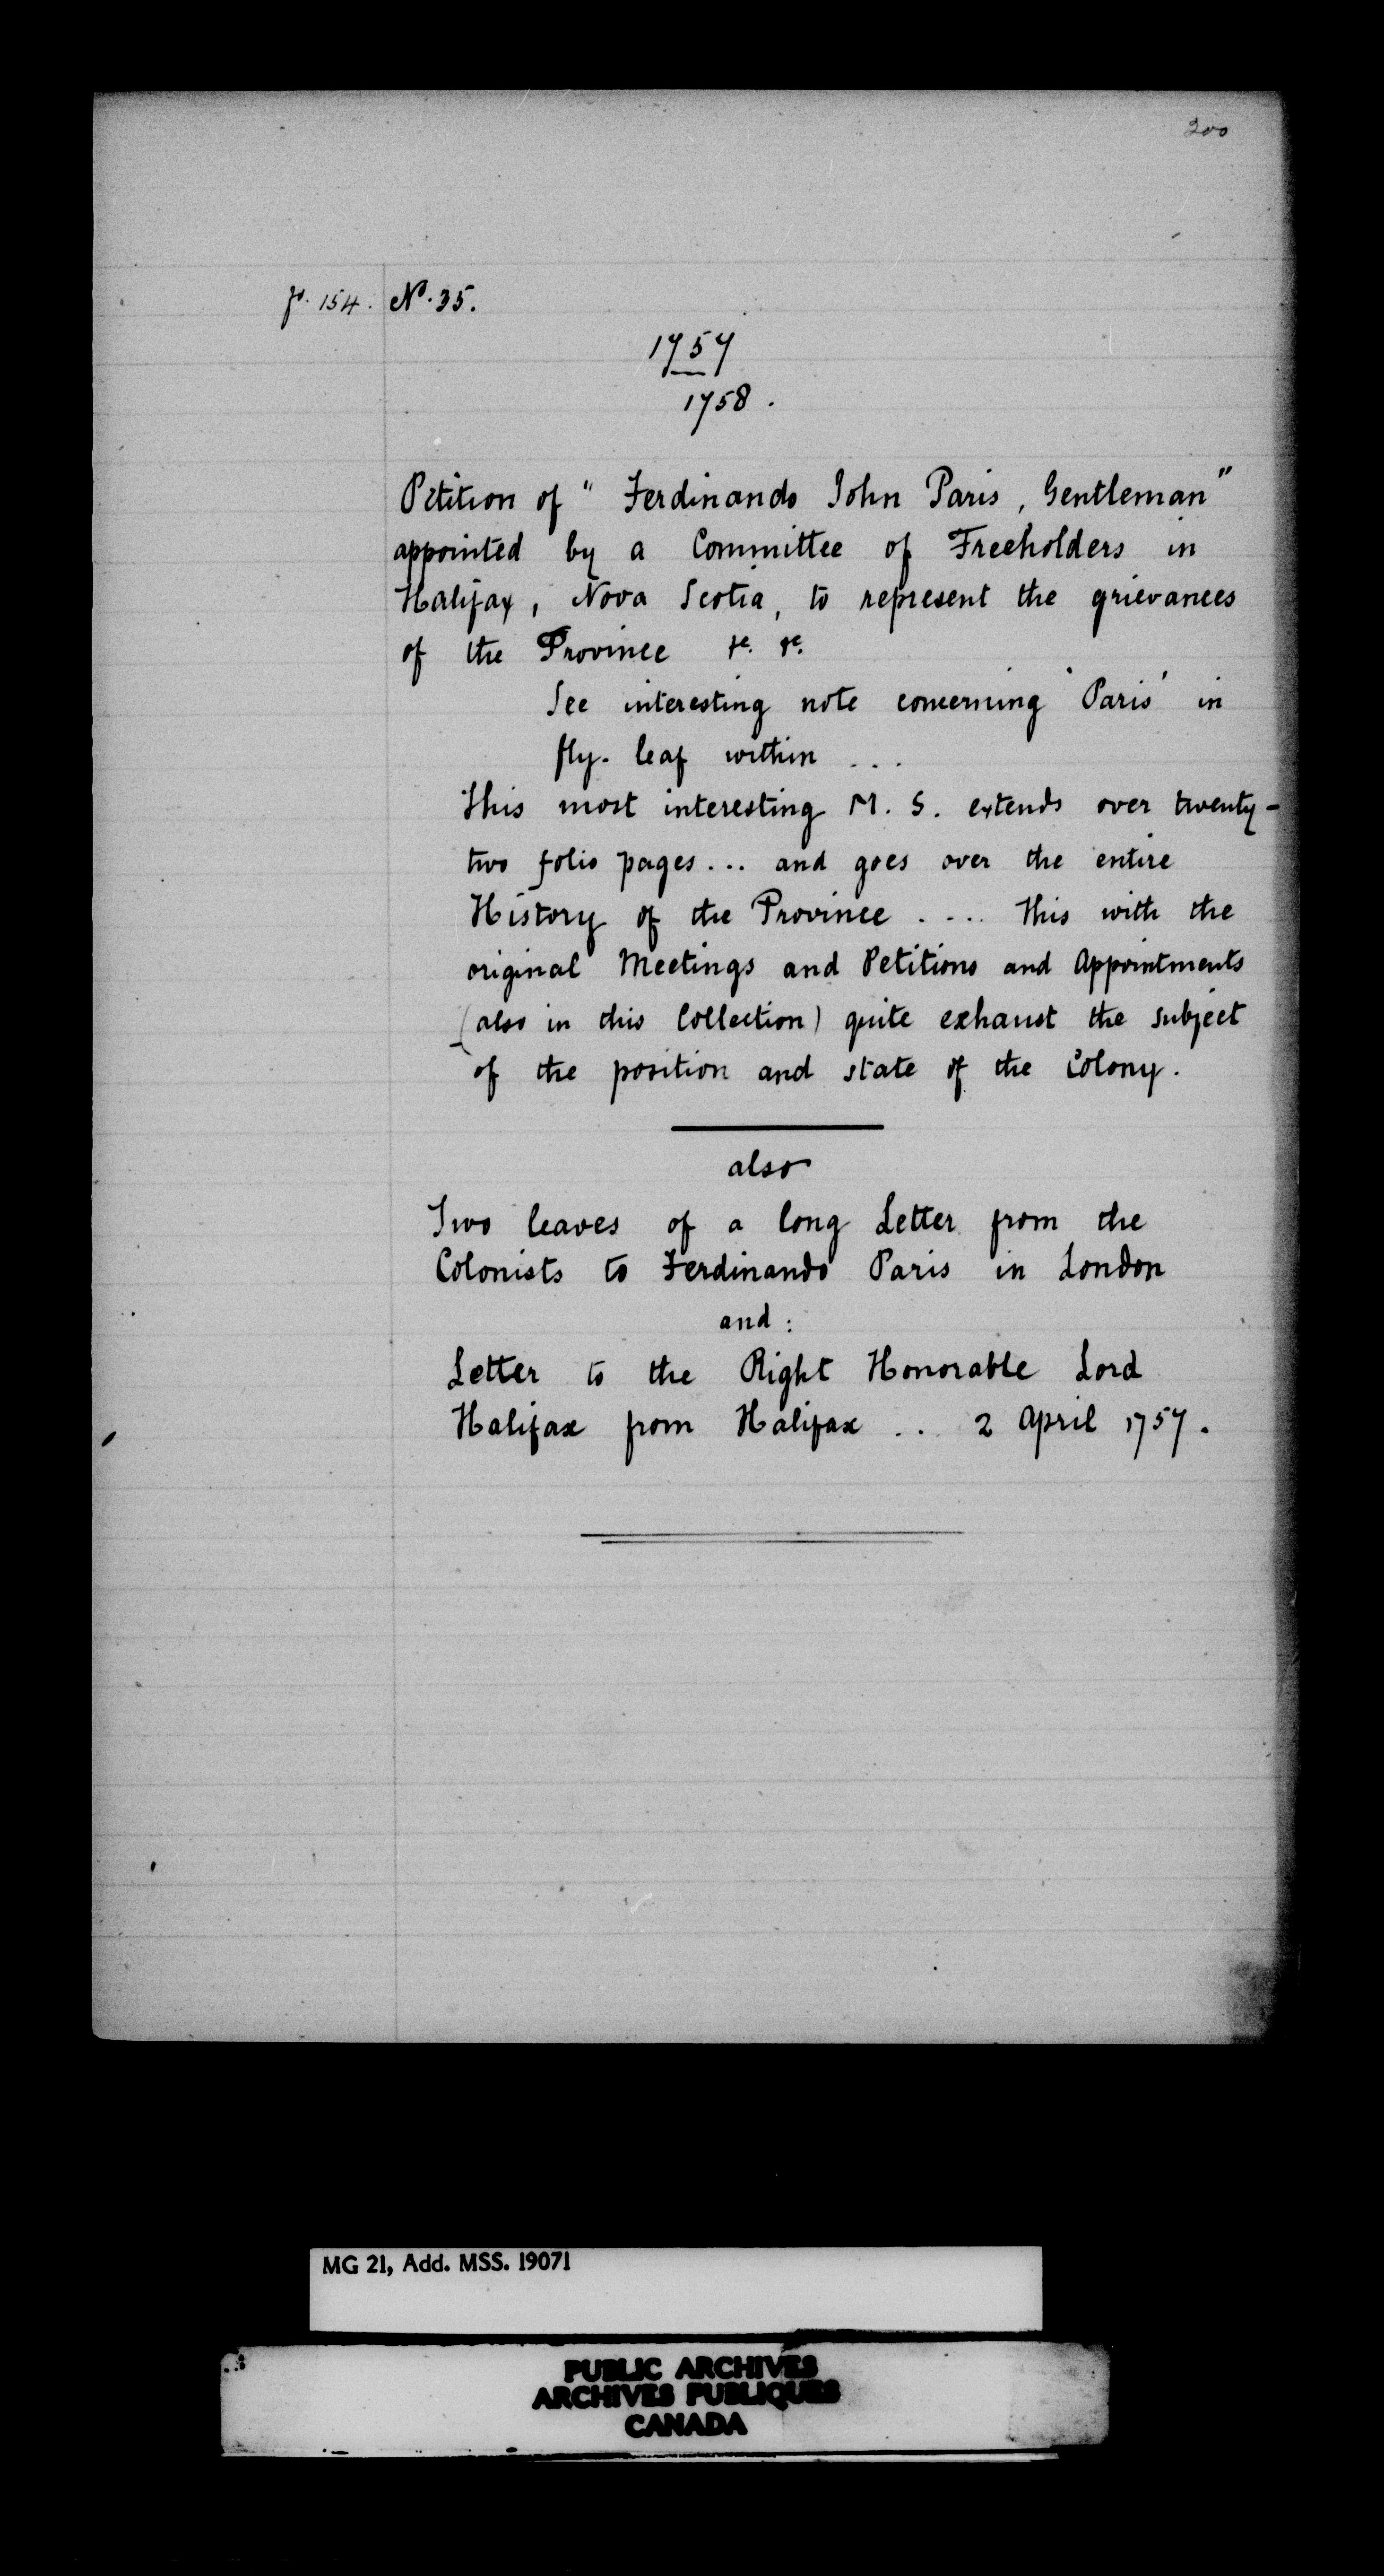 200
fo. 154. No. 35.
1757
1758.
Petition of "Ferdinando John Paris, Gentleman"
appointed by a Committee of Freeholders in
Halifax, Nova Scotia, to represent the grievances
of the Province &c. &c.
See interesting note concerning 'Paris' in
fly-leaf within ...
This most interesting M. S. extends over twenty-
two folio pages... and goes over the entire
History of the Province .... This with the
original Meetings and Petitions and Appointments
(also in this Collection) quite exhaust the subject
of the position and state of the Colony.
also
Two leaves of a long Letter from the
Colonists to Ferdinando Paris in London
and:
Letter to the Right Honorable Lord
Halifax from Halifax .. 2 April 1757.
MG 21, Add. MSS. 19071
PUBLIC ARCHIVES
ARCHIVES PUBLIQUES
CANADA